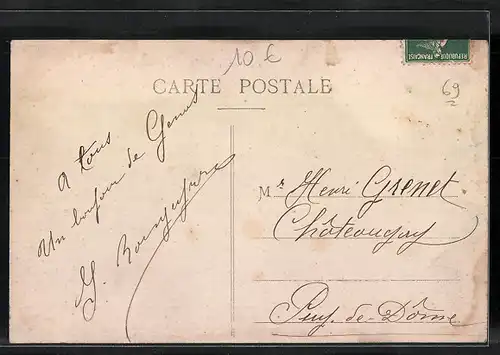 10 €
REPUBLIQUE FRANÇAISE
CARTE POSTALE
69
A tous
Un bonjour de
Mr Henri Grenet
Châteaugay
Puy-de-Dôme